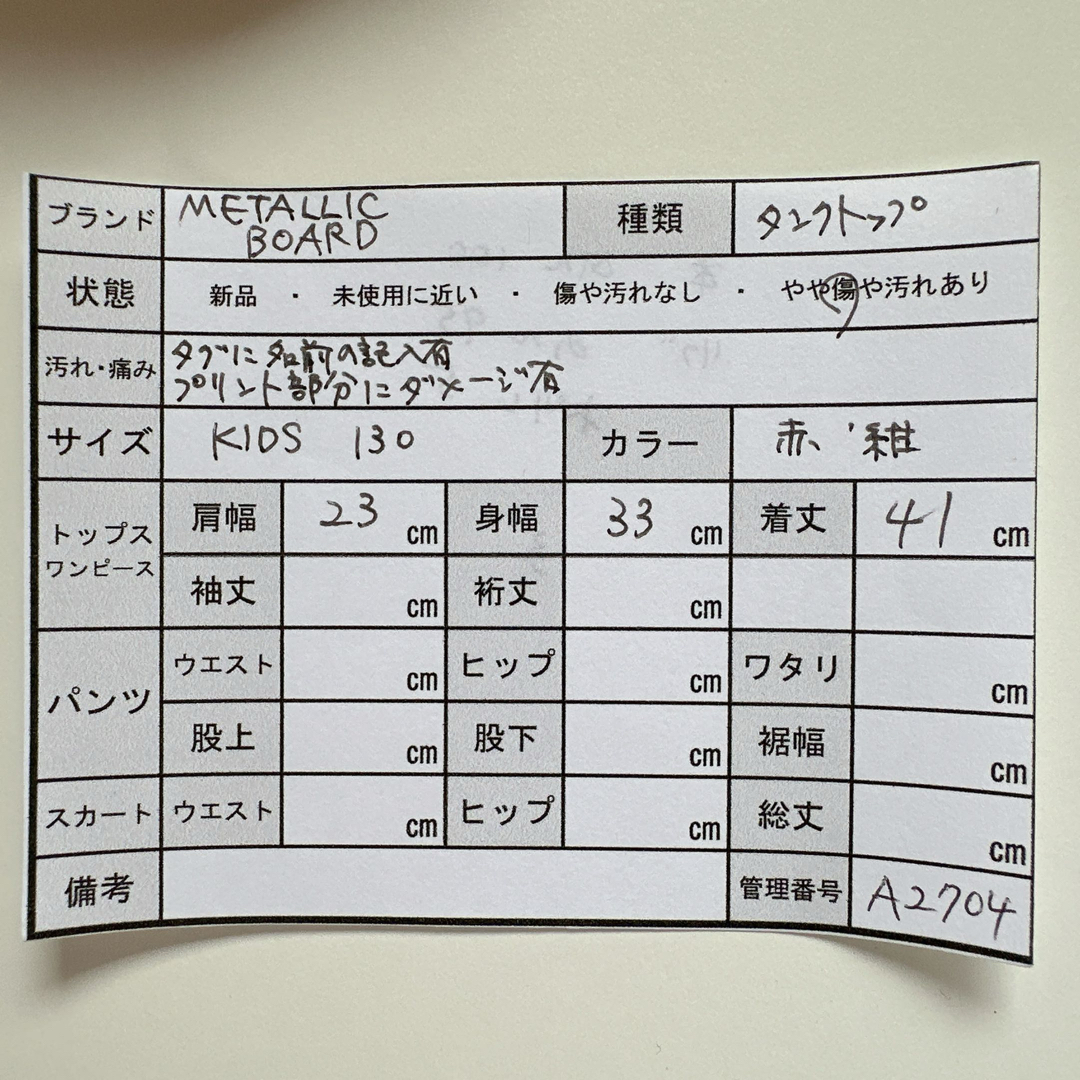 ブランド METALLIC BOARD 種類 タンクトップ
状態 新品 ・ 未使用に近い ・ 傷や汚れなし ・ やや傷や汚れあり
汚れ・痛み タグに名前の記入有
プリント部分にダメージ有
サイズ KIDS 130 カラー 赤、紺
トップス ワンピース 肩幅 23 cm 身幅 33 cm 着丈 41 cm
袖丈 cm 裄丈 cm
パンツ ウエスト cm ヒップ cm ワタリ cm
股上 cm 股下 cm 裾幅 cm
スカート ウエスト cm ヒップ cm 総丈 cm
備考 管理番号 A2704